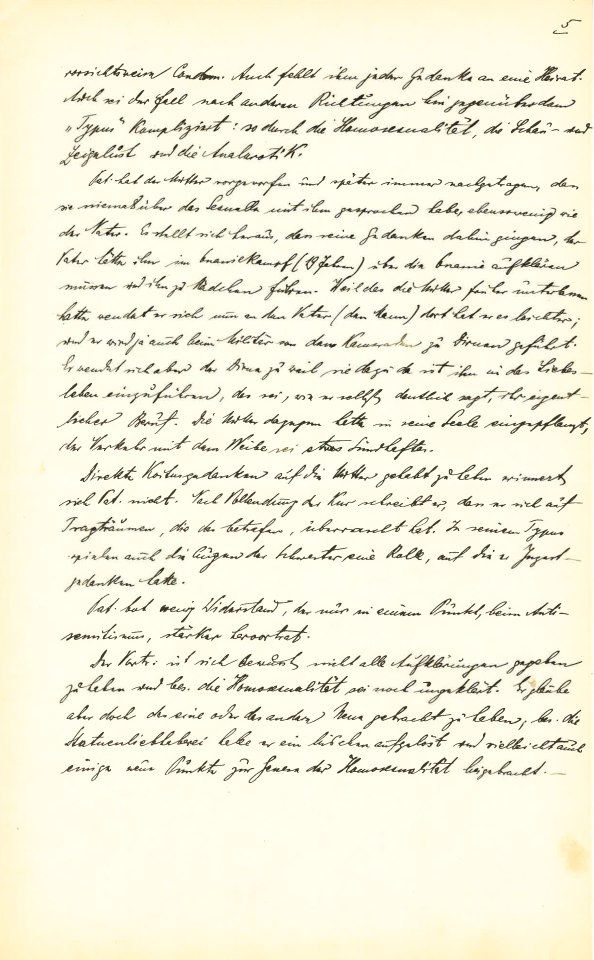 5
vorsichtsweise Condom. Auch fehlt ihm jeder Gedanke an eine Heirat.
Auch sei der Fall nach anderen Richtungen hin gegenüber dem
„Typus" kompliziert: so durch die Homosexualität, die Schau- und
Zeigelust und die Analerotik.
Pat. hat der Mutter vorgeworfen und später immer nachgetragen, dass
sie niemals über das Sexuelle mit ihm gesprochen habe, ebensowenig wie
der Vater. Es stellt sich heraus, dass seine Gedanken dahin gingen, der
Vater hätte ihn im Onaniekampf (19 Jahre) über die Onanie aufklären
müssen und ihn zu Mädchen führen. Weil das die Mutter früher unterlassen
hatte, wendet er sich nun an den Vater (den Mann) dort hat er es leichter;
und er wird ja auch beim Militär von den Kameraden zu Dirnen geführt.
Er wendet sich aber der Dirne zu weil sie dazu da ist ihn in das Liebes-
leben einzuführen, das sei, wie er selbst deutlich sagt, ihr eigent-
licher Beruf. Die Mutter dagegen hatte in seine Seele eingepflanzt,
der Verkehr mit dem Weibe sei etwas Sündhaftes.
Direkte Koitusgedanken auf die Mutter gehabt zu haben erinnert
sich Pat. nicht. Nach Vollendung der Kur schreibt er, dass er sich auf
Tragträumen, die das betrafen, überrascht hat. In seinem Typus
spielen auch die Augen der Schwester eine Rolle, auf die er
gedanken hatte.
Pat. bot wenig Widerstand, der nur in einem Punkt, beim Anti-
semitismus, stärker hervortrat.
Der Vortr. ist sich bewusst, nicht alle Aufklärungen gegeben
zu haben und bes. die Homosexualität sei noch ungeklärt. Er glaube
aber doch das eine oder das andere Neue gebracht zu haben; bes. die
Statuenliebhaberei habe er ein bischen aufgelöst und vielleicht auch
einige neue Punkte zur Genese der Homosexualität beigebracht. —